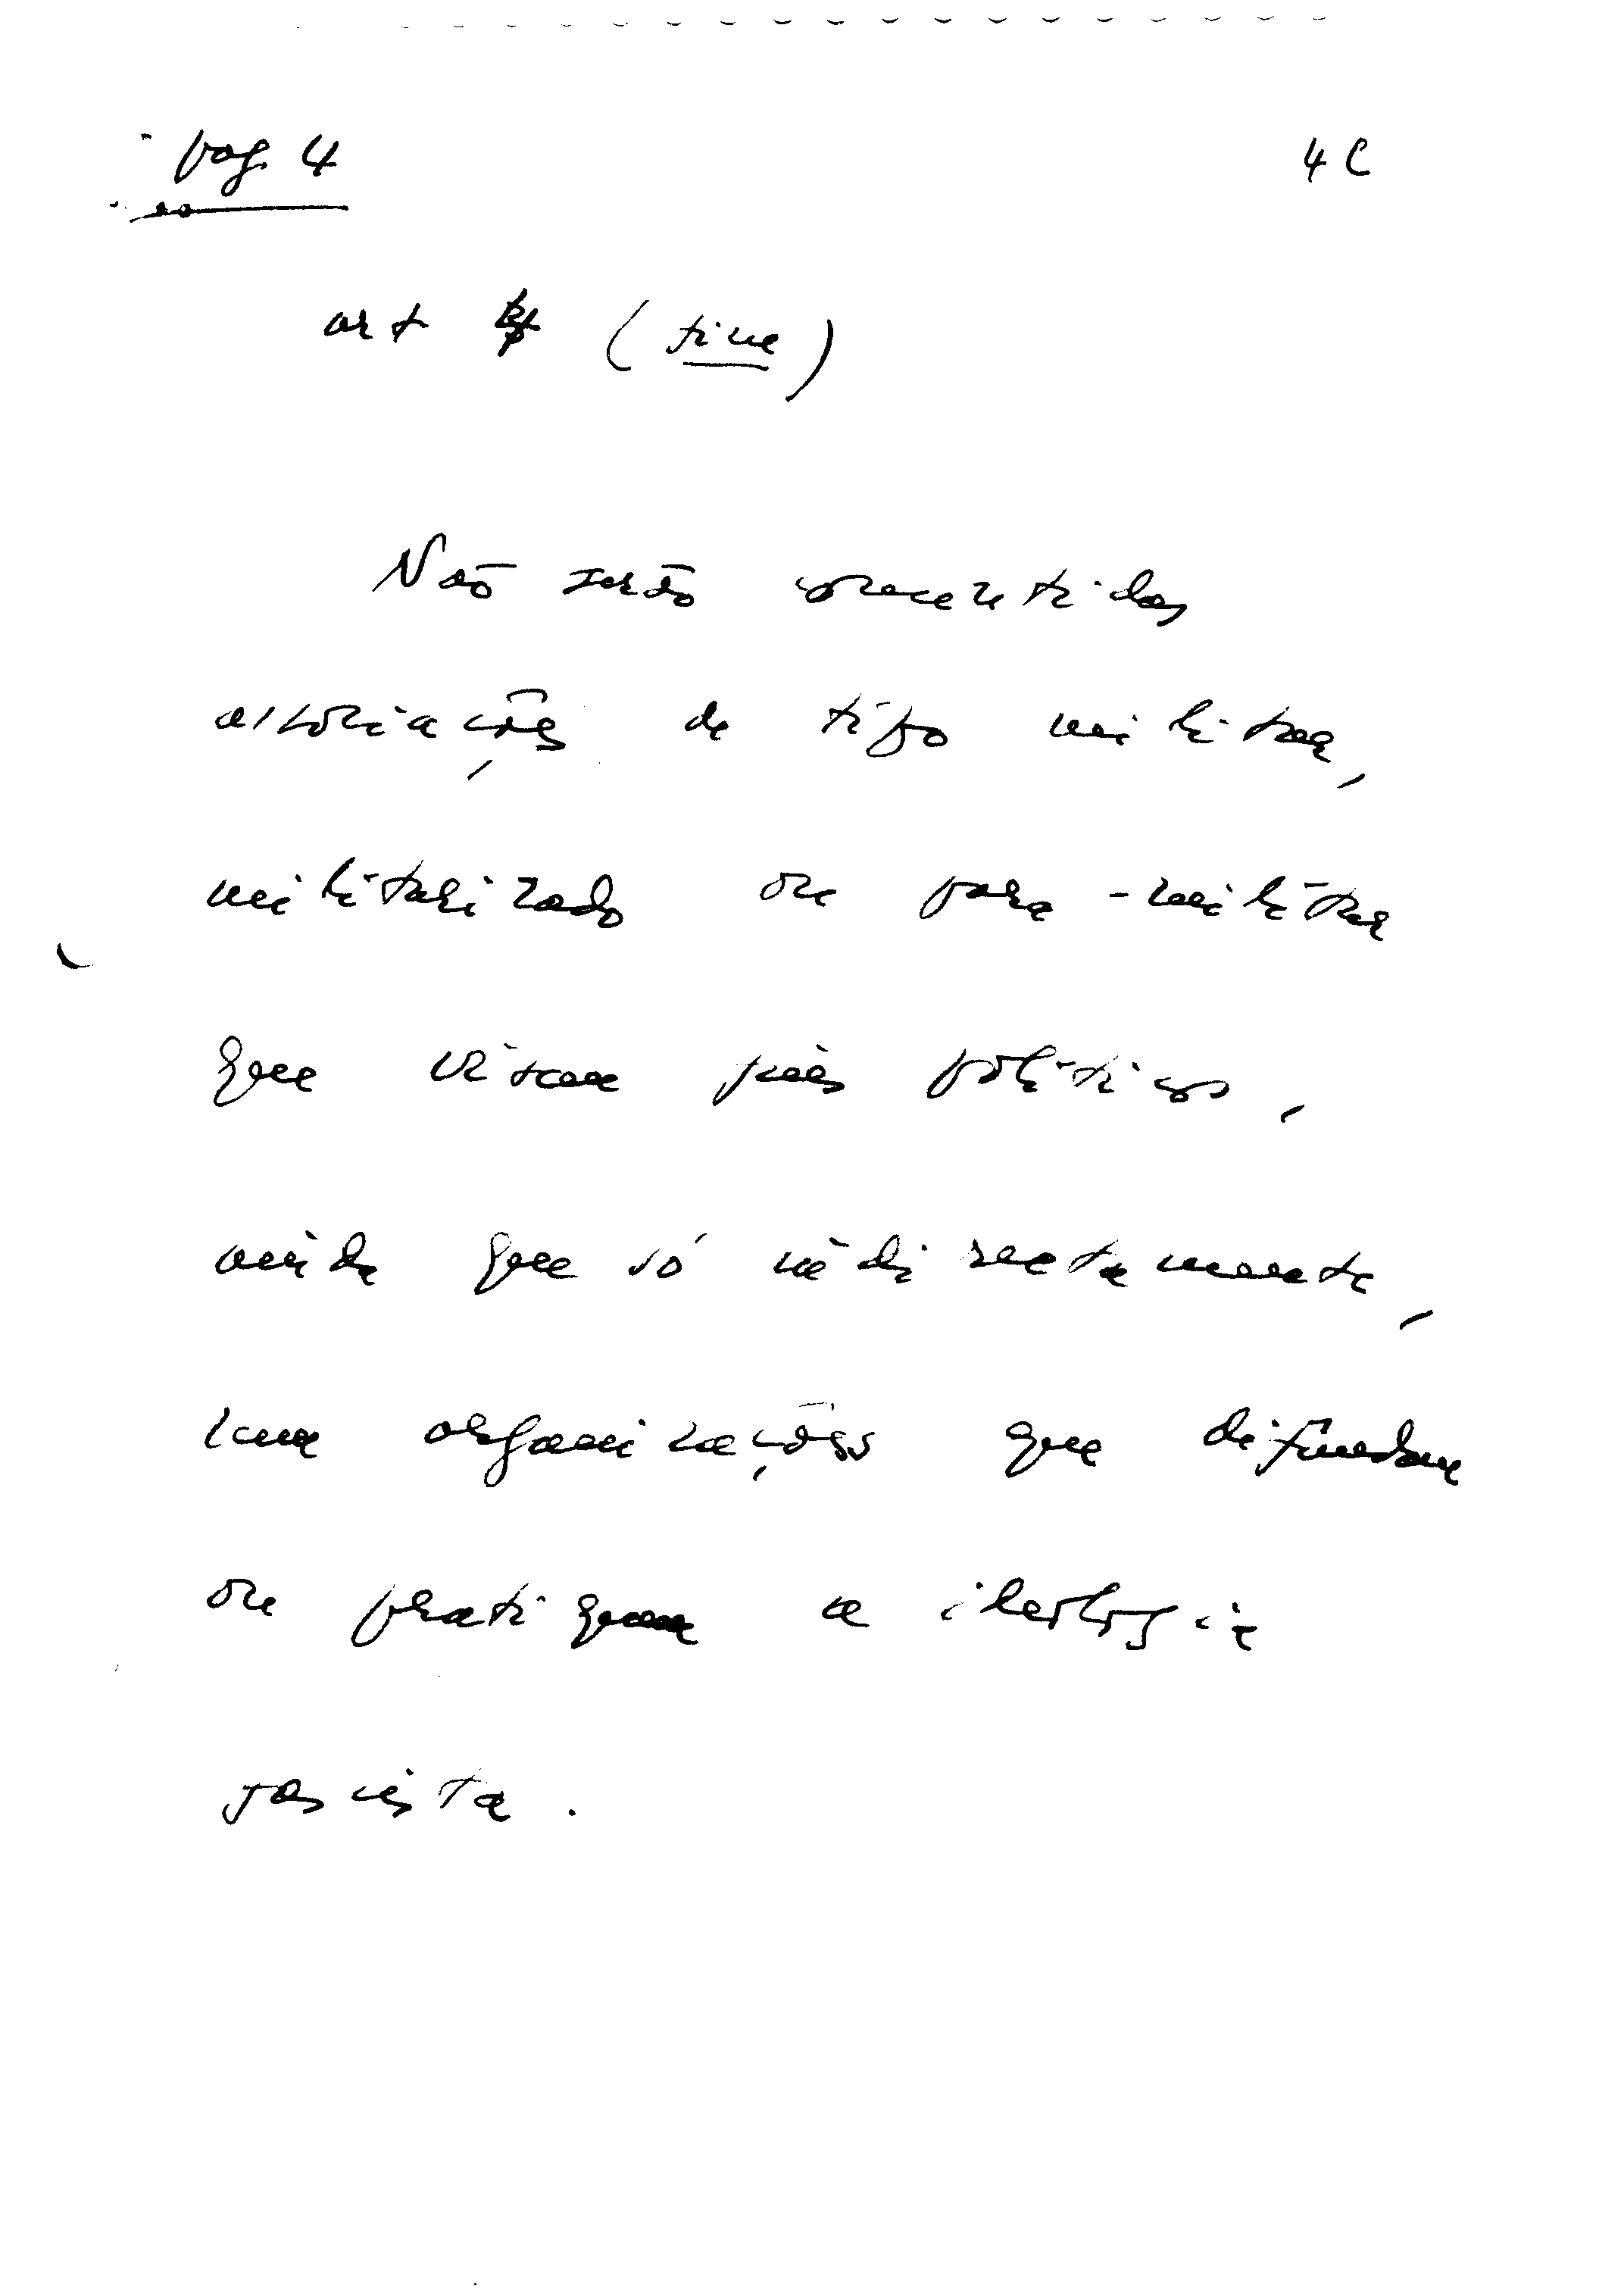 pag. 4
4 C
art (fim)
Não serão consentidas
associações de tipo militar,
militarizado ou para-militar
que visam fins políticos,
ainda que só indirectamente,
nem organizações que difundam
ou pratiquem a ideologia
fascista.